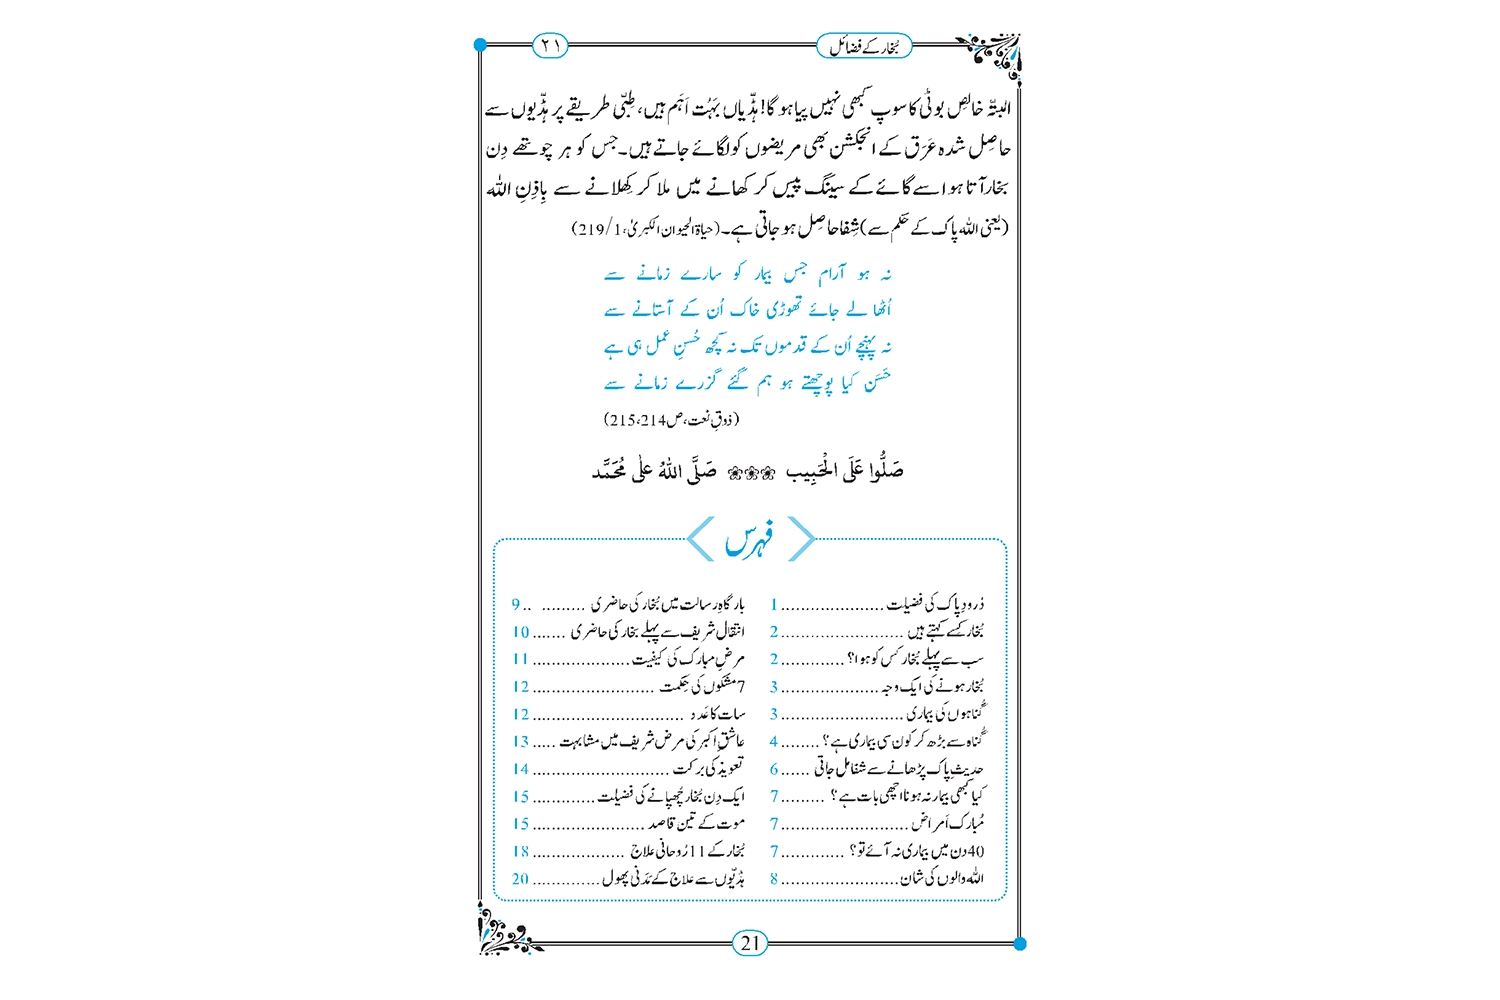 بُخار کے فضائل
۲۱
البتّہ خالِص بوٹی کا سوپ کبھی نہیں پیا ہو گا! ہڈّیاں بَہُت اَہَم ہیں، طِبّی طریقے پر ہڈّیوں سے
حاصِل شدہ عَرَق کے انجکشن بھی مریضوں کو لگائے جاتے ہیں۔ جس کو ہر چوتھے دِن
بخار آتا ہو اسے گائے کے سینگ پیس کر کھانے میں ملا کر کِھلانے سے بِاِذنِ اللہ
(یعنی اللہ پاک کے حَکم سے) شِفا حاصِل ہو جاتی ہے۔ (حیاۃ الحیوان الکبریٰ، 1/219)
نہ ہو آرام جس بیمار کو سارے زمانے سے
اُٹھا لے جائے تھوڑی خاک اُن کے آستانے سے
نہ پہنچے اُن کے قدموں تک نہ کچھ حُسنِ عمل ہی ہے
حَسَن کیا پوچھتے ہو ہم گئے گزرے زمانے سے
(ذوقِ نعت، ص 214، 215)
صَلُّوا عَلَی الْحَبِیب ❀❀❀ صَلَّی اللہُ علٰی مُحَمَّد
فہرس
دُرودِ پاک کی فضیلت ..................... 1
بُخار کسے کہتے ہیں ......................... 2
سب سے پہلے بُخار کس کو ہوا؟ ............. 2
بُخار ہونے کی ایک وجہ .................... 3
گُناہوں کی بیماری ......................... 3
گُناہ سے بڑھ کر کون سی بیماری ہے؟ ........ 4
حدیثِ پاک پڑھانے سے شفا مل جاتی ...... 6
کیا کبھی بیمار نہ ہونا اچھی بات ہے؟ ......... 7
مُبارک اَمراض .......................... 7
40 دن میں بیماری نہ آئے تو؟ ............. 7
اللہ والوں کی شان ........................ 8
بارگاہِ رسالت میں بُخار کی حاضری ......... .. 9
انتقال شریف سے پہلے بخار کی حاضری ....... 10
مرضِ مبارک کی کیفیت .................... 11
7 مشکوں کی حِکمت ......................... 12
سات کا عَدد ............................... 12
عاشقِ اکبر کی مرض شریف میں مشابہت ..... 13
تعویذ کی برکت ............................ 14
ایک دِن بُخار چُھپانے کی فضیلت ............. 15
موت کے تین قاصد ....................... 15
بُخار کے 11 رُوحانی علاج ................... 18
ہڈیّوں سے علاج کے مَدَنی پھول .............. 20
21